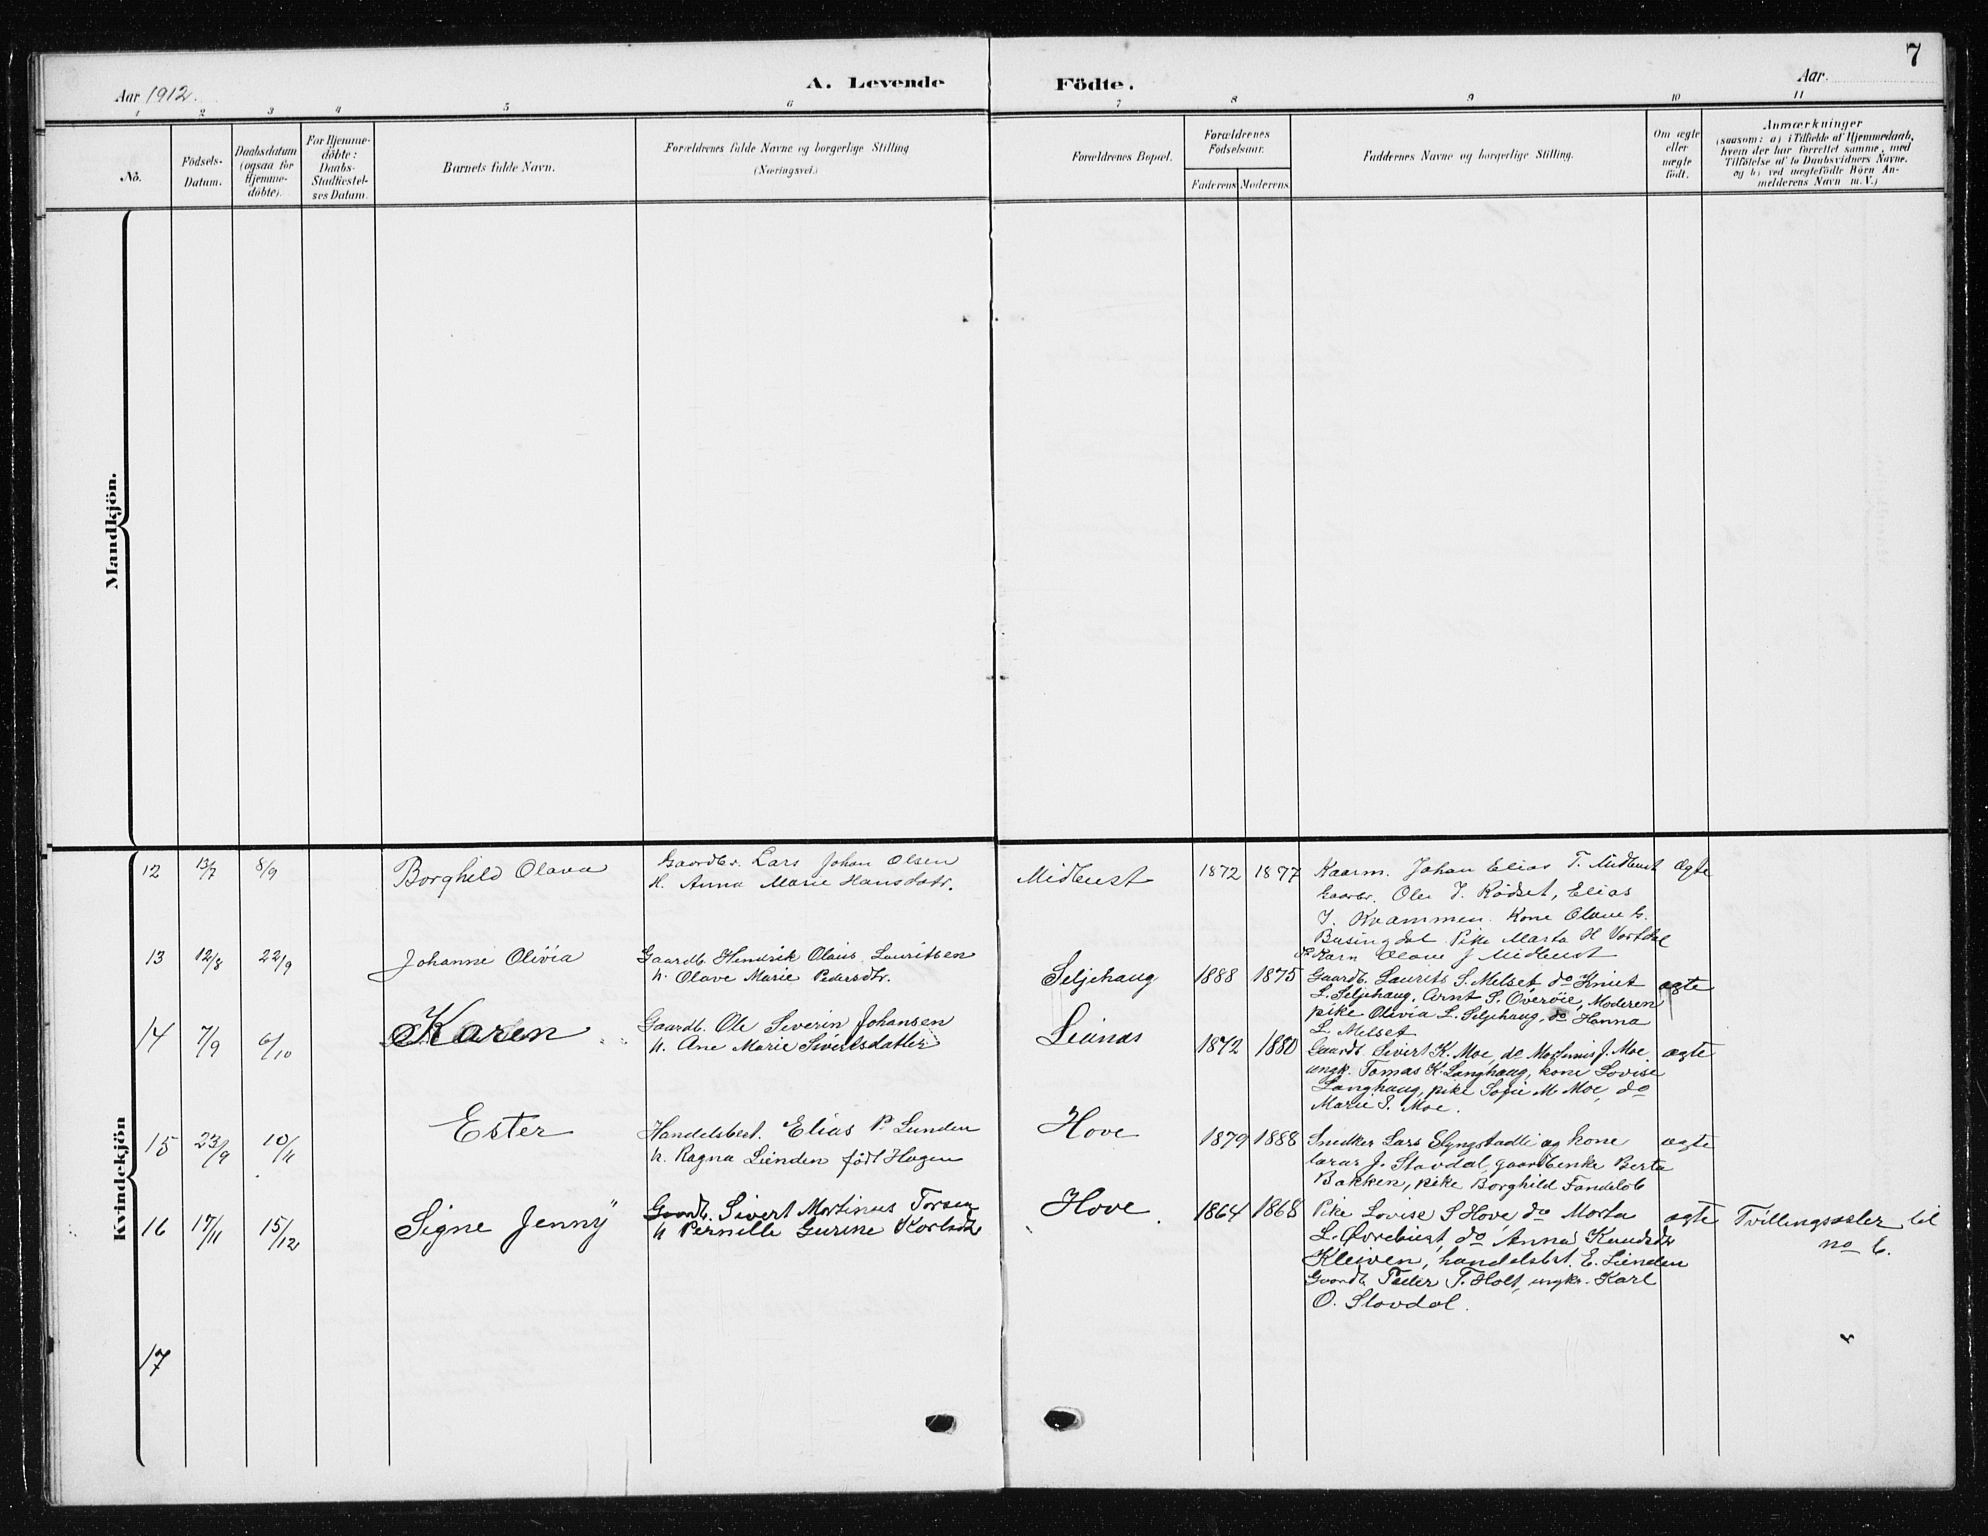 7
Aar 1912.
A. Levende Födte.
Aar.
1 2 3 4 5 6 7 8 9 10 11
No.
Födsels-
Datum.
Daabsdatum
(ogsaa for
Hjemme-
döbte).
For Hjemme-
döbte:
Daabs-
Stadfæstel-
ses Datum.
Barnets fulde Navn.
Forældrenes fulde Navne og borgerlige Stilling
(Næringsvei.)
Forældrenes Bopæl.
Forældrenes
Födselsaar.
Faderens Moderens
Faddernes Navne og borgerlige Stilling.
Om ægte
eller
uægte
födt.
Anmærkninger
(saasom: a) i Tilfælde af Hjemmedaab,
hvem der har forrettet samme, med
Tilföielse af to Daabsvidners Navne.
og b) ved uægtefödte Börn An-
melderens Navn m. V.)
Mandkjön.
Kvindekjön
12 13/7 8/9 Borghild Olava
Gaardbr. Lars Johan Olsen
H. Anna Marie Hansdatr.
Midbust 1872 1877
Kaarm. Johan Elias T. Midbust ægte
Gaardbr. Ole J. Rödset, Elias
J. Kvammen. Kone Olave
Busingdal Pike Marta H Vortdal
Karn Olave J Midbust
13 12/8 22/9 Johanne Olivia
Gaardb. Hendrik Olaus Lauritsen
h. Olave Marie Pedersdtr.
Seljehaug 1888 1875
Gaardb. Laurits S. Melset do Knut ægte
L. Seljehaug, Arnt S. Överöie, Moderen
pike Olivia L. Seljehaug, do Hanna
L. Melset
14 7/9 6/10 Karen
Gaardb. Ole Severin Johansen
h. Ane Marie Sivertsdatter
Lianas 1872 1880
Gaardb. Sivert K. Moe, do Martinus J. Moe ægte
ungk. Tomas K Langhaug, kone Lovise
Langhaug, pike Sofie M Moe, do
Marie S. Moe.
15 23/9 10/11 Ester
Handelsbest. Elias P. Linden
h. Ragna Linden født Hagen
Hove 1879 1888
Snedker Lars Slyngstadli og kone ægte
J. Stavdal, gaardbenke Berta
Bakken, pike Borghild Fandelöb
16 17/11 15/12 Signe Jenny
Gaardb. Sivert Martinus Torsen
h Pernille Gurine Karlsdtr
Hove 1864 1868
Pike Lovise S Hove, do Marta ægte Tvillingsøster til
L. Øvrebust, do Anna Knudsdtr no 6.
Kleiven, handelsbst. E. Linden
Gaardb. Peder T. Holt, ungkr. Karl
O. Stavdal.
17